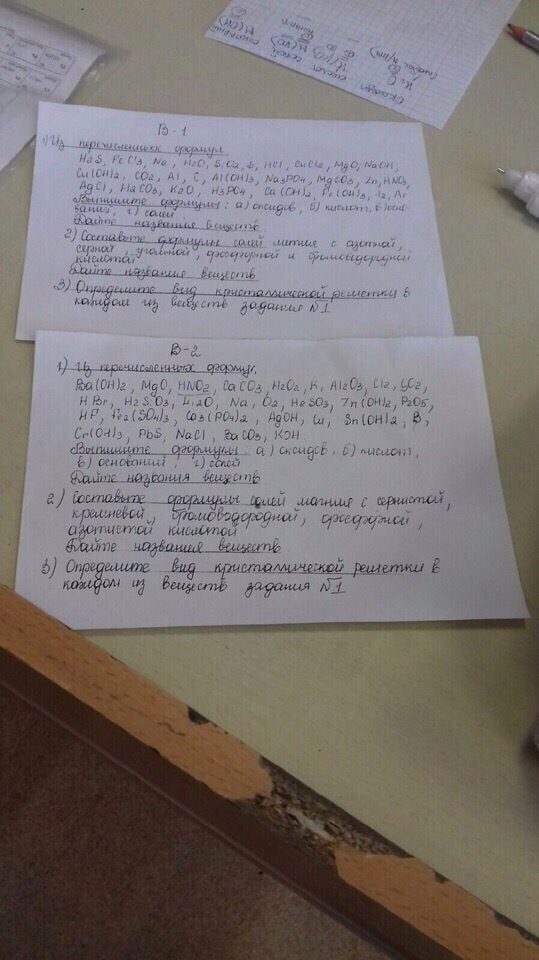 Оксиды
K₂O
M(OH)
B-1
1) Из перечисленных формул
H2S, FeCl3, Na, H2O, SiO2, S, HCl, CuCl2, MgO, NaOH,
Cu(OH)2, CO2, Al, C, Al(OH)3, Na3PO4, MgCO3, Zn, HNO3,
AgCl, H2CO3, K2O, H3PO4, Ca(OH)2, Fe(OH)3, I2, Ar
Выпишите формулы: а) оксидов, б) кислот, в) осно-
ваний, г) солей
Дайте названия веществ
2) Составьте формулы солей лития с азотной,
серной, угольной, фосфорной и бромоводородной
кислотой
Дайте названия веществ
3) Определите вид кристаллической решетки в
каждом из веществ задания №1
B-2
1) Из перечисленных формул
Ba(OH)2, MgO, HNO2, CaCO3, H2O2, K, Al2O3, Cl2,
HBr, H2SiO3, Li2O, Na, O2, H2SO3, Zn(OH)2, P2O5,
HF, Fe2(SO4)3, Ca3(PO4)2, AgOH, Sn(OH)2, B,
Cr(OH)3, PbS, NaCl, BaCO3, KOH
Выпишите формулы: а) оксидов, б) кислот,
в) оснований, г) солей
Дайте названия веществ
2) Составьте формулы солей магния с сернистой,
кремневой, бромоводородной, фосфорной,
азотистой кислотой
Дайте названия веществ
3) Определите вид кристаллической решетки в
каждом из веществ задания №1